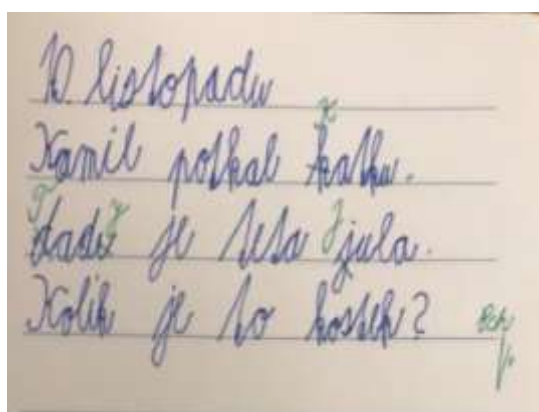 10. listopadu
Kamil potkal katku.
dadi je teta jula.
Kolik je to kostek?